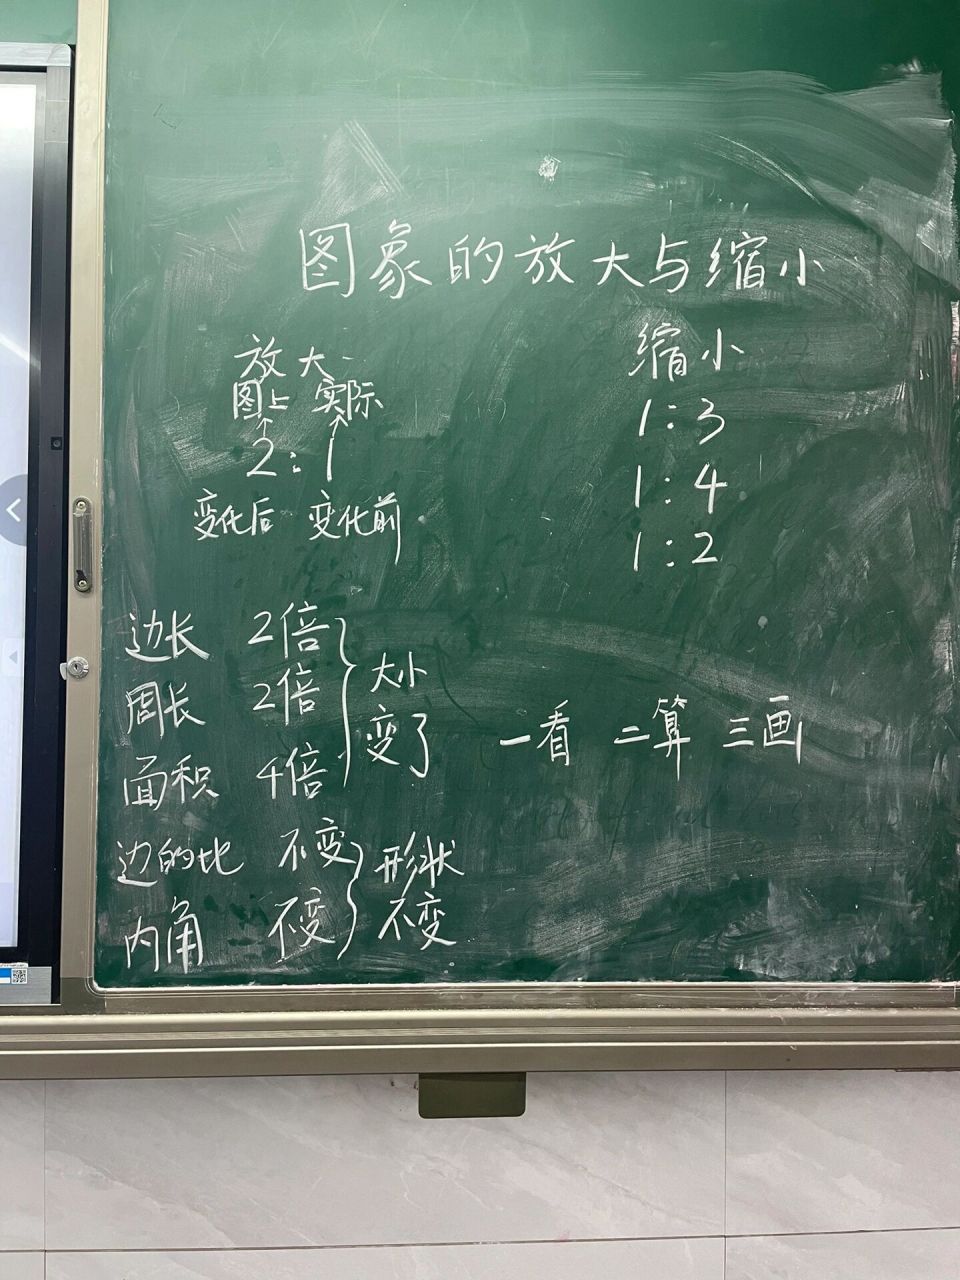 图象的放大与缩小
放大
图上 实际
2:1
变化后 变化前
缩小
1:3
1:4
1:2
边长 2倍
周长 2倍
面积 4倍
大小
变了
边的比 不变
内角 不变
形状
不变
一看 二算 三画